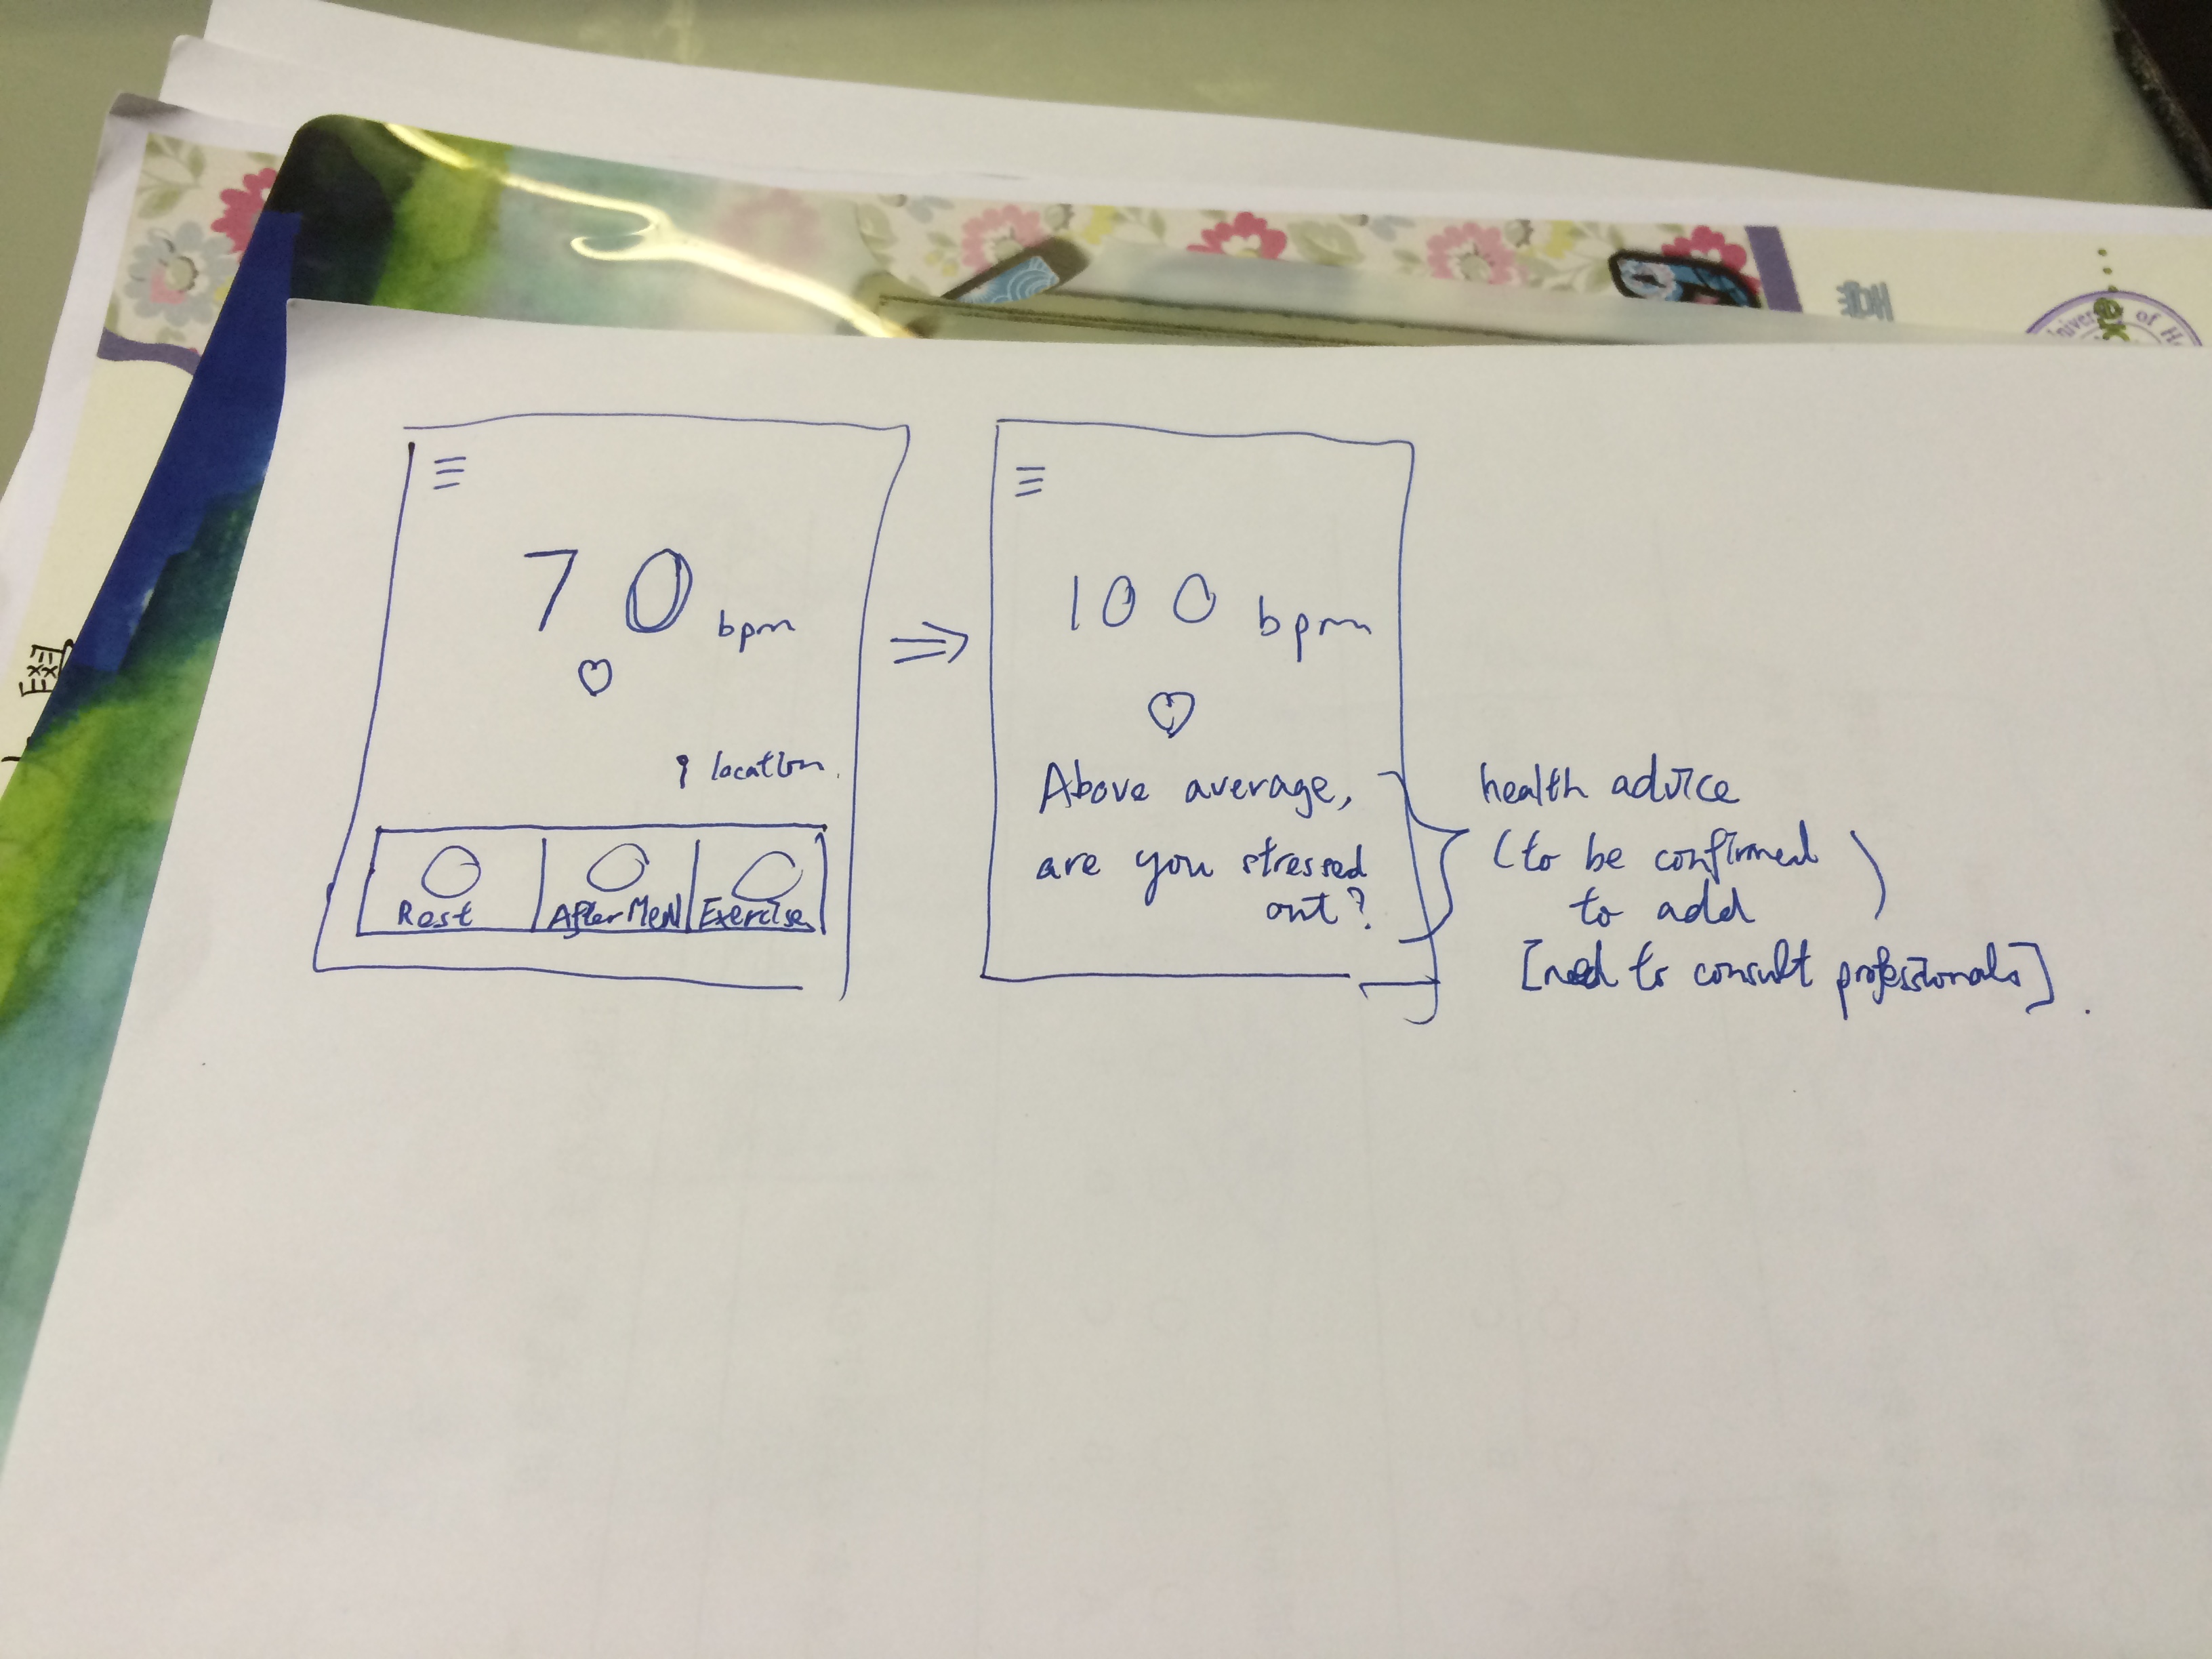 70 bpm
location
Rest
After Meal
Exercise
100 bpm
Above average,
are you stressed
out?
health advice
(to be confirmed
to add)
[need to consult professionals].